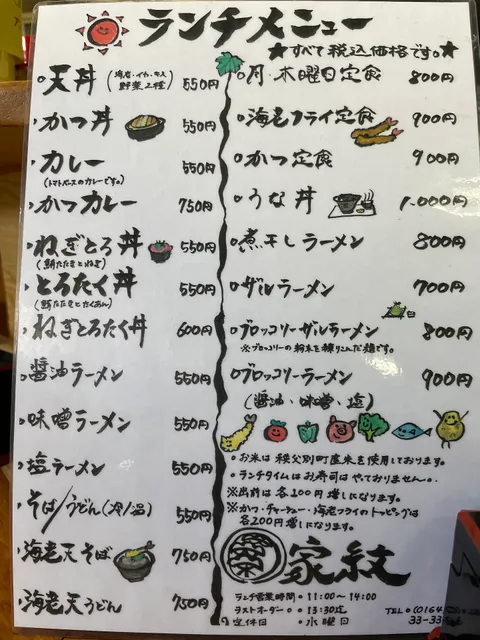 ランチメニュー
★すべて税込価格です。★
天丼(海老・イカ・キス 野菜2種) 550円
かつ丼 550円
カレー 550円
(トマトベースのカレーです。)
かつカレー 750円
ねぎとろ丼 550円
(鮪たたきとねぎ)
とろたく丼 550円
(鮪たたきとたくあん)
ねぎとろたく丼 600円
醤油ラーメン 550円
味噌ラーメン 550円
塩ラーメン 550円
そば/うどん(冷/温) 550円
海老天そば 750円
海老天うどん 750円
月・木曜日定食 800円
海老フライ定食 900円
かつ定食 900円
うな丼 1,000円
煮干しラーメン 800円
ザルラーメン 700円
ブロッコリーザルラーメン 800円
※ブロッコリーの粉末を練りこんだ麺です。
ブロッコリーラーメン 900円
(醤油・味噌・塩)
お米は秩父別町産米を使用しております。
ランチタイムはお寿司はやっておりません。
※出前は各100円増しになります。
※かつ・チャーシュー・海老フライのトッピングは
各200円増しになります。
家紋
ランチ営業時間・11:00〜14:00
ラストオーダー・13:30迄
定休日・水曜日
TEL (0164)
33-33